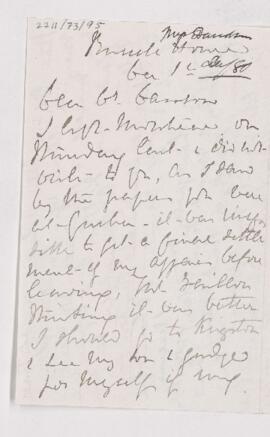 2211/73/95
Mrs Davidson
Dec 1st /80
Dear Mr
I left Montreal on
Monday last & did not
write to you, as I saw
by the papers you were
at Quebec - it was impos
sible to get a final settle
ment of my affairs before
leaving, Mr
thinking it was better
I should go to Kingston
& see my son & judged
for myself if my